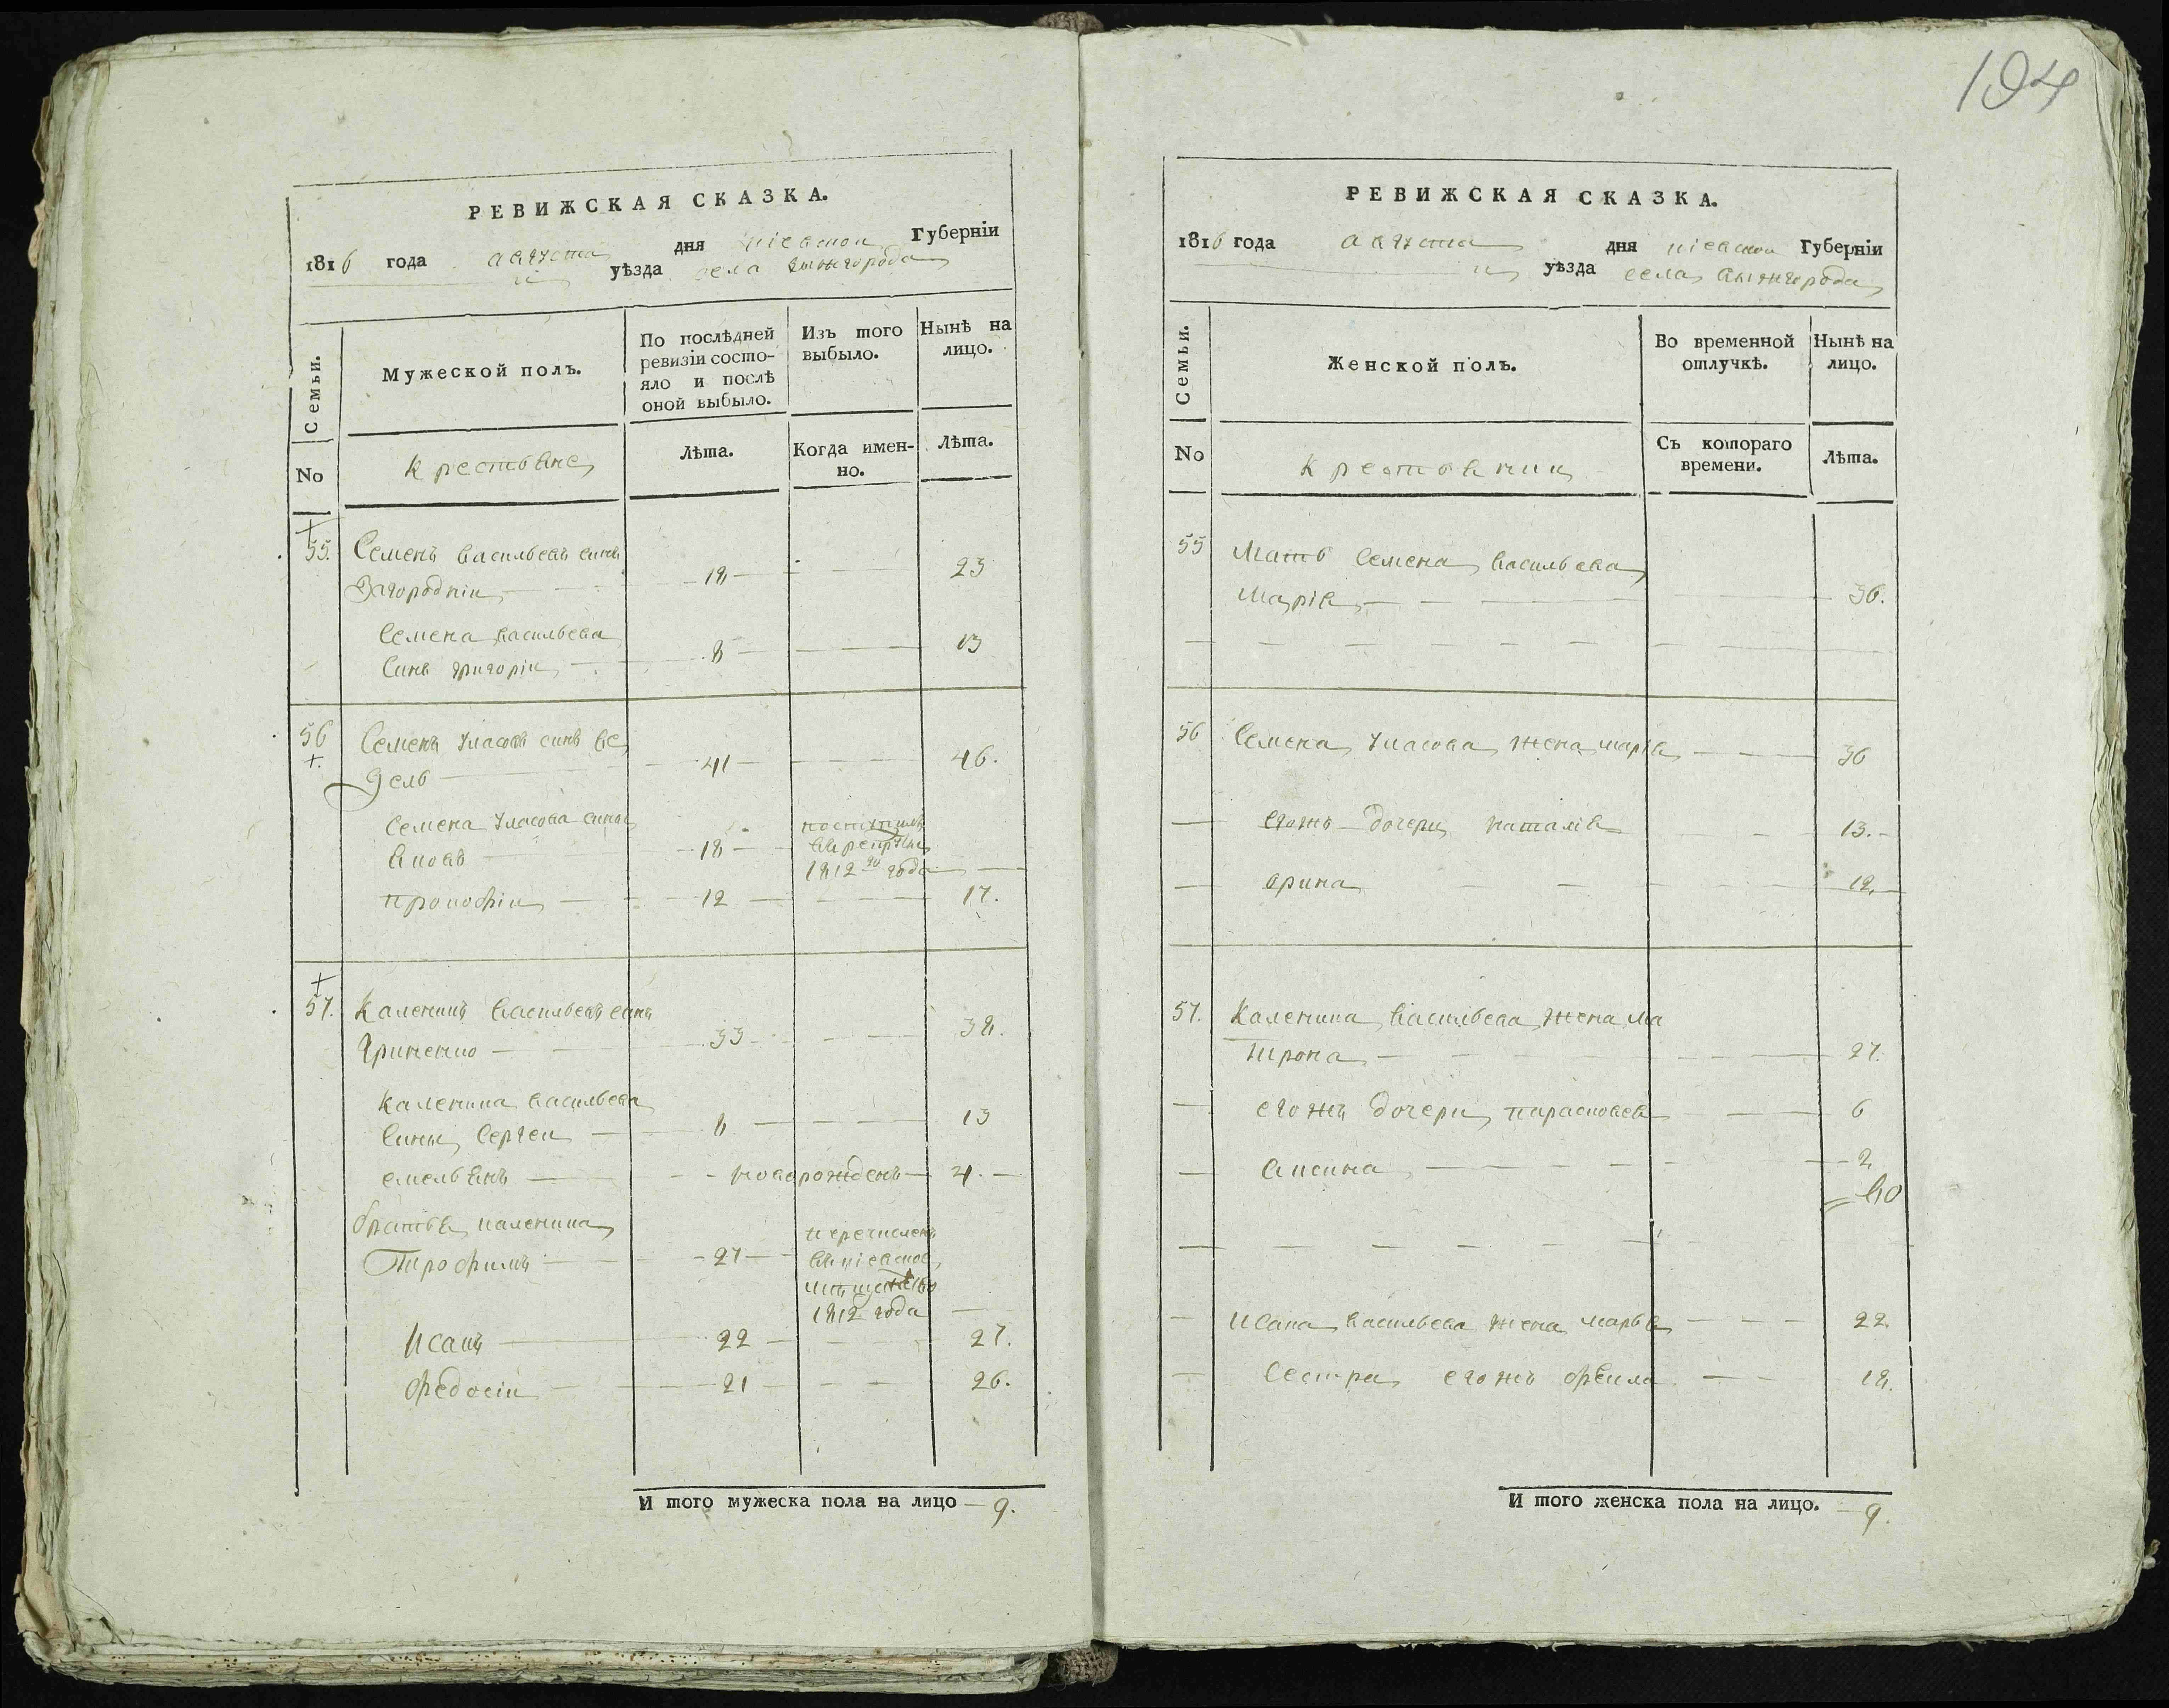 194
РЕВИЖСКАЯ СКАЗКА.
1816 года августа дня кіевской Губерніи
уѣзда села вышгорода
Семьи.
Мужеской полъ.
По послѣдней ревизіи состо-
яло и послѣ оной выбыло.
Изъ того выбыло.
Нынѣ на лицо.
No
крестьяне
Лѣта.
Когда имен-
но.
Лѣта.
55. Семенъ васильевъ синъ
Загородніи 18 23
Семена васильева
Синъ григоріи 8 13
56 Семенъ Уласовъ синъ ве
дель 41 46.
Семена Уласова сины
18 поступилъ
1812 го года
прокофіи 12 17.
57. Каленикъ васильевъ синъ
гриненко 33 38.
каленика васильева
Сины Сергеи 8 13
емельянъ новорожденъ 4.
братья каленика
Трофимъ 27 перечисленъ
1812 года
Исакъ 22 27.
федосіи 21 26.
И того мужеска пола на лицо 9.
РЕВИЖСКАЯ СКАЗКА.
1816 года августа дня кіевской Губерніи
уѣзда села вышгорода
Семьи.
Женской полъ.
Во временной
отлучкѣ.
Нынѣ на
лицо.
No
крестьянки
Съ котораго
времени.
Лѣта.
55 Мать Семена васильева
Марія 56.
56 Семена Уласова жена марія 36
егожъ дочери наталія 13.
орина 12
57. Каленика васильева жена ма
трона 27.
егожъ дочери парасковея 6
2
Исака васильева жена марья 22.
Сестра егожъ фекла 18.
И того женска пола на лицо. 9.